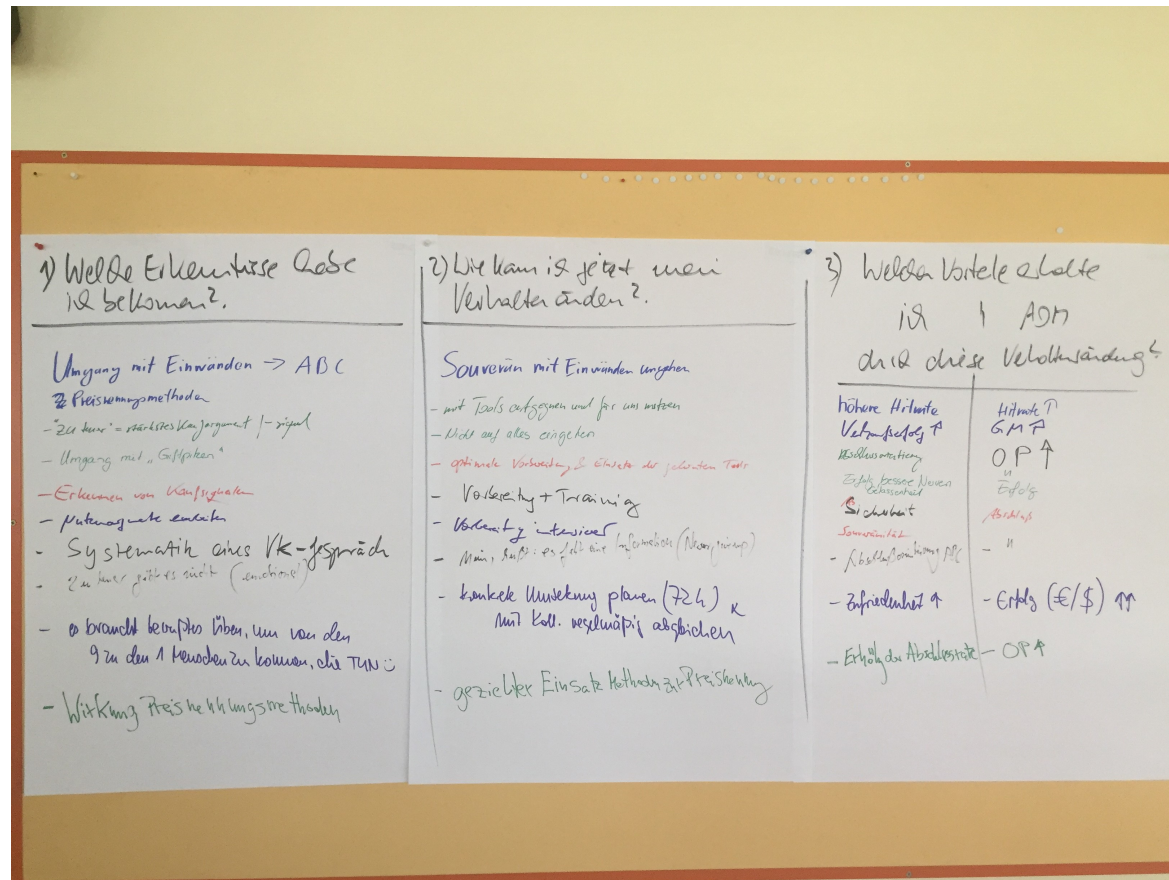 1) Welche Erkenntnisse habe
ich bekommen?.
Umgang mit Einwänden → ABC
Preisnennungsmethoden
- "Zu teuer" = stärkstes Kaufargument /-signal
- Umgang mit „Giftpfeilen"
- Erkennen von Kaufsignalen
- Nutenmagnete
- Systematik eines VK-Gespräch
- Zu teuer gibt es nicht (emotional)
- es braucht bewußtes Üben, um von den
9 zu den 1 Menschen zu kommen, die TUN
- Wirkung Preisnennungsmethoden
2) Wie kann ich jetzt mein
Verhalten ändern?.
Souverän mit Einwänden umgehen
- mit Tools entgegnen und für uns nutzen
- Nicht auf alles eingehen
- optimale Vorbereitung & Einsatz der gelernten Tools
- Vorbereitung + Training
- Vorbereitung intensiver
- heißt: es fehlt eine Information
- konkrete Umsetzung planen (72h)
mit Koll. regelmäßig abgleichen
- gezielter Einsatz Methoden zur Preisnennung
3) Welchen Vorteile erhalte
ich | ADM
durch diese Verhaltensändung?
höhere Hitrate
Hitrate ↑
Verkaufserfolg ↑
GM ↑
Abschlussorientierung
OP ↑
Erfolg bessere Nerven
Gelassenheit
Erfolg
Sicherheit
Abschluss
Souveränität
- Abschlußorientierung ABC
- "
- Zufriedenheit ↑
- Erfolg (€/$) ↑↑
- Erhöhg der Abschlussrate
- OP ↑